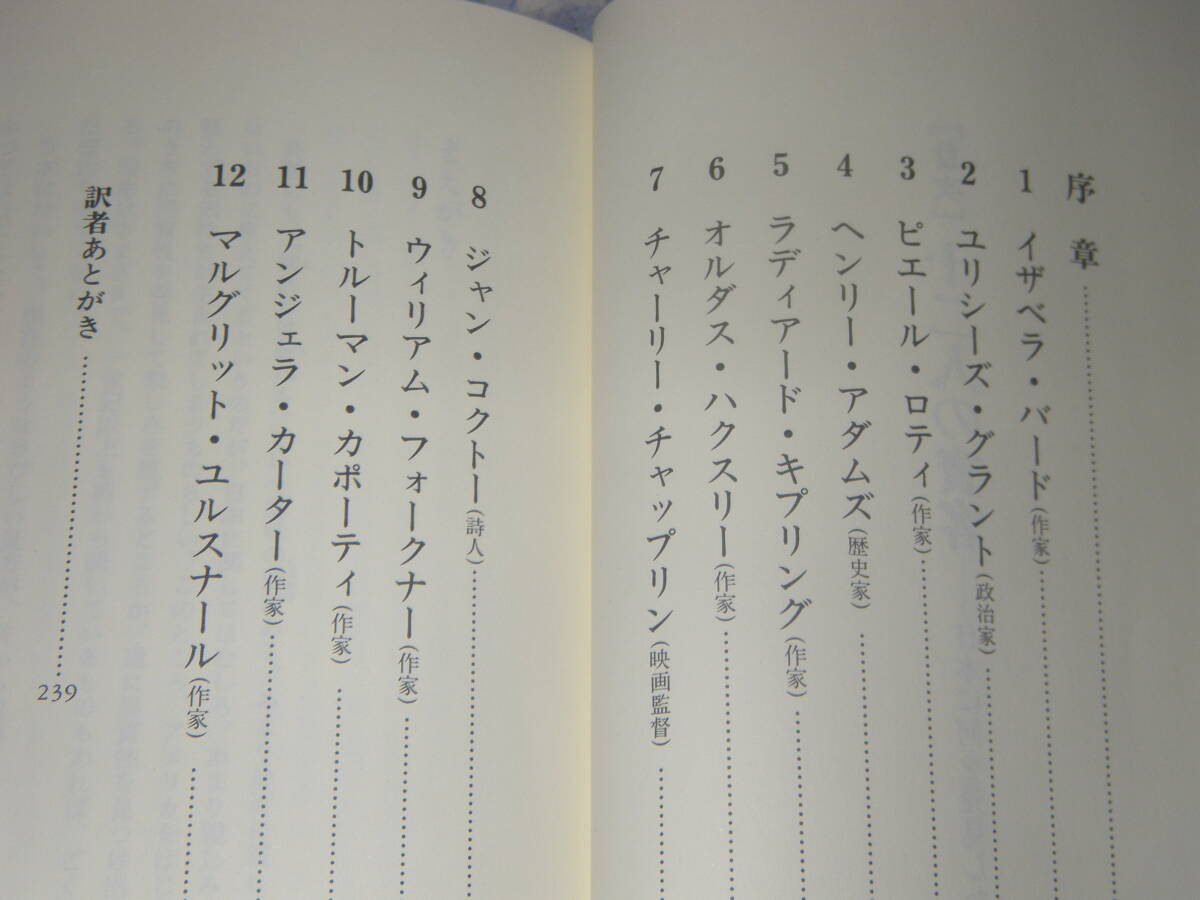 序章
1 イザベラ・バード(作家)
2 ユリシーズ・グラント(政治家)
3 ピエール・ロティ(作家)
4 ヘンリー・アダムズ(歴史家)
5 ラディアード・キプリング(作家)
6 オルダス・ハクスリー(作家)
7 チャーリー・チャップリン(映画監督)
8 ジャン・コクトー(詩人)
9 ウィリアム・フォークナー(作家)
10 トルーマン・カポーティ(作家)
11 アンジェラ・カーター(作家)
12 マルグリット・ユルスナール(作家)
訳者あとがき 239